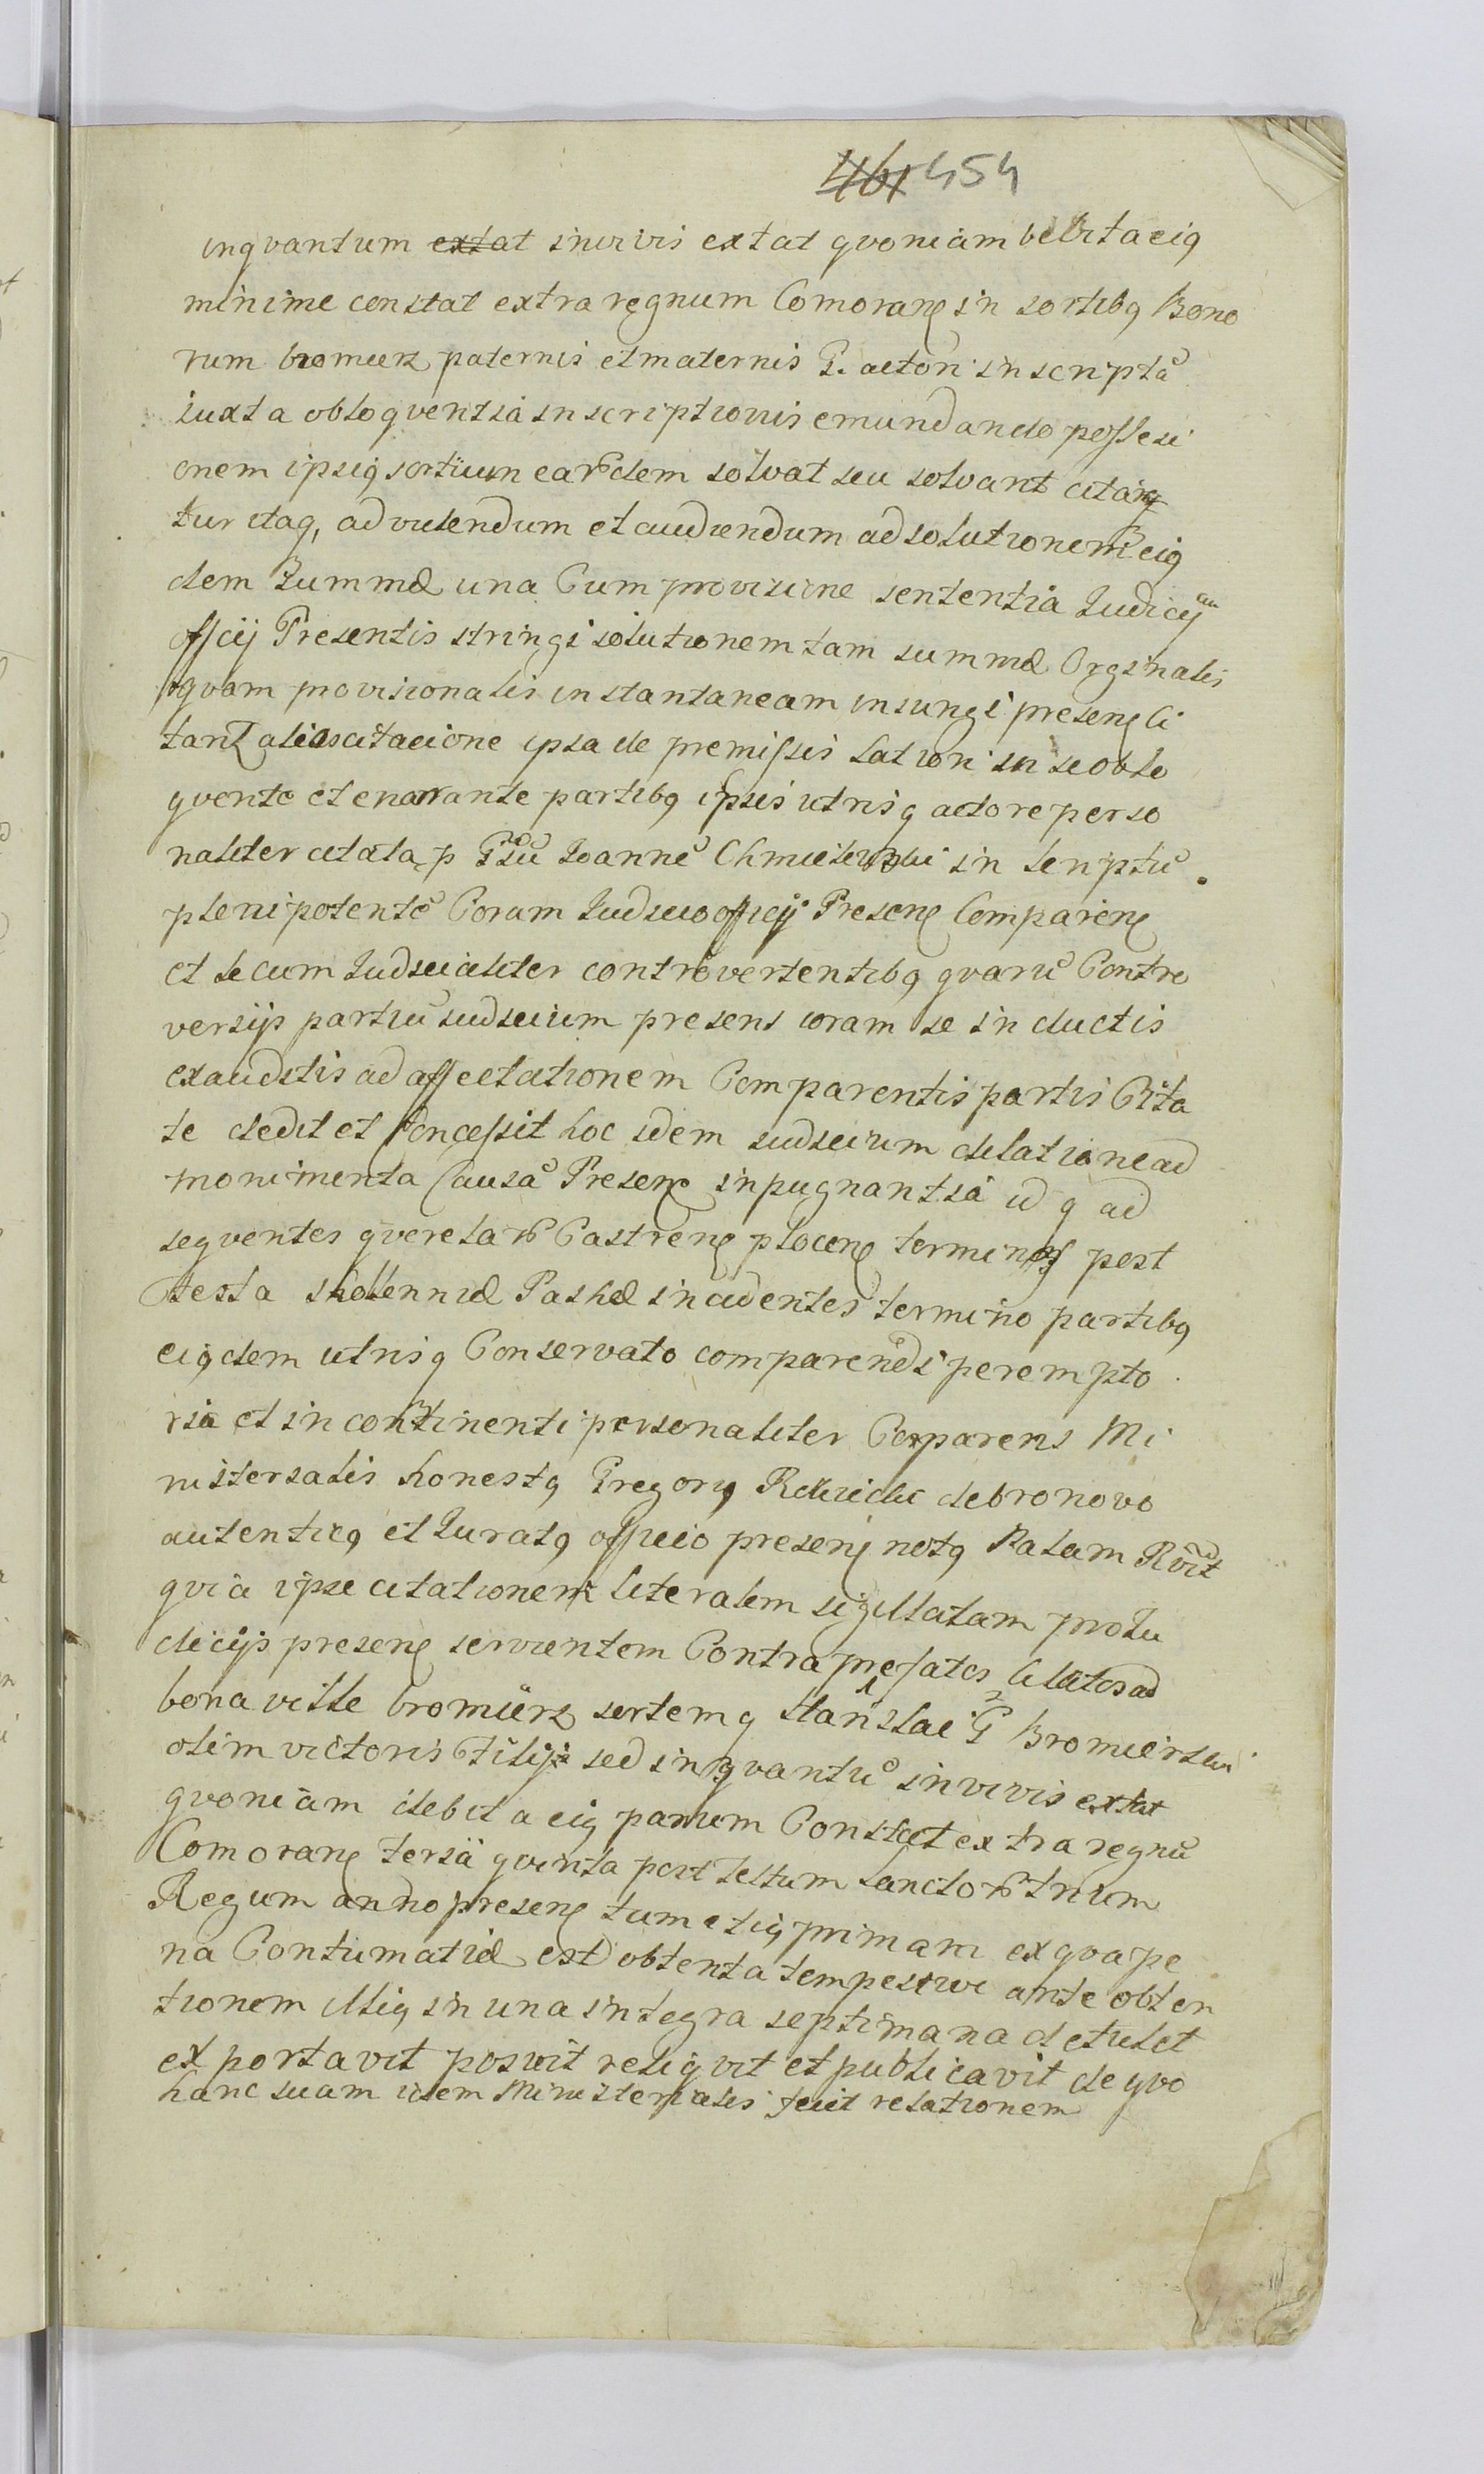 461 454
inqvantum extat in vivis extat qvoniam debita eiq
minime constat extra regnum Comoranę in sortibq Bono
rum bromierz paternis et maternis G. actori inscriptā
iuxta obloqventiā inscriptionis emundando possesi
onem ipsiq sortium earūdem solvat seu solvant citan
tur itaq, ad videndum et audiendum ad solutionem eiq
dem Summæ una Cum provisione sententia Iudicij au
officij Presentis stringi solutionem tam summæ Orginalis
qvam provisionalis instantaneam iniungi presenę Ci
tant alias citacione ipsa de premissis latiori in se oblo
qvente et enarrante partibq ipsis utrisq actore perso
naliter citata p Gsū Ioannē Chmielewski in scriptū
plenipotentē Coram Iudicio officij Presenę Comparenę
et secum Iudicialiter controvertentibq qvarū Contro
versijs partiū iudicium presens coram se in ductis
exauditis ad affectationem Comparentis partis Cita
te dedit et concessit hoc idem iudicium dilatione ad
monimenta Causā Presenę inpugnantiā id q ad
seqventes qverelar Castrenę plocenę terminos post
festa sollennia Pashæ incidentes termino partibq
eiqdem utrisq Conservato comparendi perempto
riē et in continenti personaliter Comparens Mi
nisterialis honestq Gregoriq Rdzicki de bronovo
autenticq et Iuratq officio presenę notq Palam Rvit
qvia ipse citationem literalem sigillatam pro Iu
dicijs presenę servientem Contra prefatos Citatos ad
bona ville bromierz sortemq Stanislai G Bromierski
olim victoris filij sed inqvantū in vivis extat
qvoniam debita eiq parum Constat extra regnū
Comoranę feria qvinta post festum sanctor trium
Regum anno presenę tum etiq primam ex qva pe
na Contumatiæ est obtenta tempestive ante obten
tionem illiq in una integra septimana detulit
exportavit posvit reliqvit et publicavit de qvo
hanc suam idem Ministerialis fecit relationem